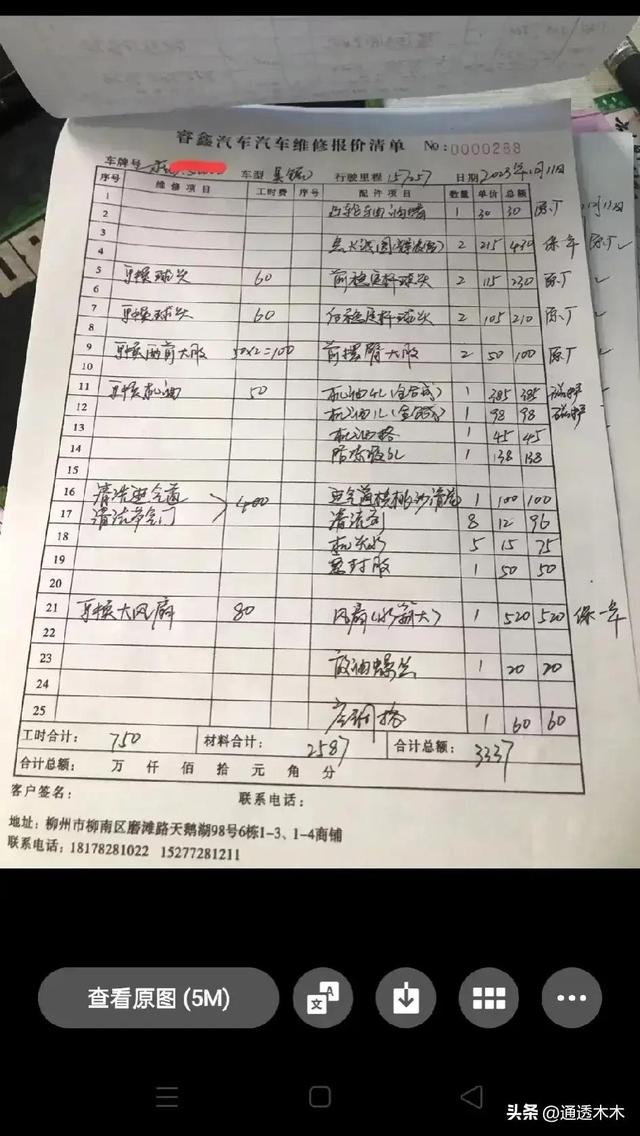 睿鑫汽车汽车维修报价清单 No:0000288
车牌号 车型 昊锐 行驶里程 157257 日期 2023年 月11日
序号 维修项目 工时费 序号 配件项目 数量 单价 总额
1 1 30 30 原厂
2
3
4 点火线圈 2 215 430 保一年 原厂
5 更换球头 60 前稳定杆球头 2 115 230 原厂
6
7 更换球头 60 后稳定杆球头 2 105 210 原厂
8
9 更换两前大胶 50x2=100 前摆臂大胶 2 50 100 原厂
10
11 更换机油 50 机油4L(全合成) 1 385 385
12 机油1L(全合成) 1 98 98
13 机油格 1 45 45
14 防冻液 1 138 138
15
16 清洗进气道 400 进气道核桃沙清洗 1 100 100
17 清洗节气门 清洗剂 8 12 96
18 5 15 75
19 密封胶 1 50 50
20
21 更换大风扇 80 风扇 1 520 520 保一年
22
23 放油螺丝 1 20 20
24
25 空调格 1 60 60
工时合计: 750 材料合计: 2587 合计总额: 3337
合计总额: 万 仟 佰 拾 元 角 分
客户签名: 联系电话:
地址:柳州市柳南区磨滩路天鹅湖98号6栋1-3、1-4商铺
联系电话:18178281022 15277281211
查看原图 (5M)
头条 @通透木木